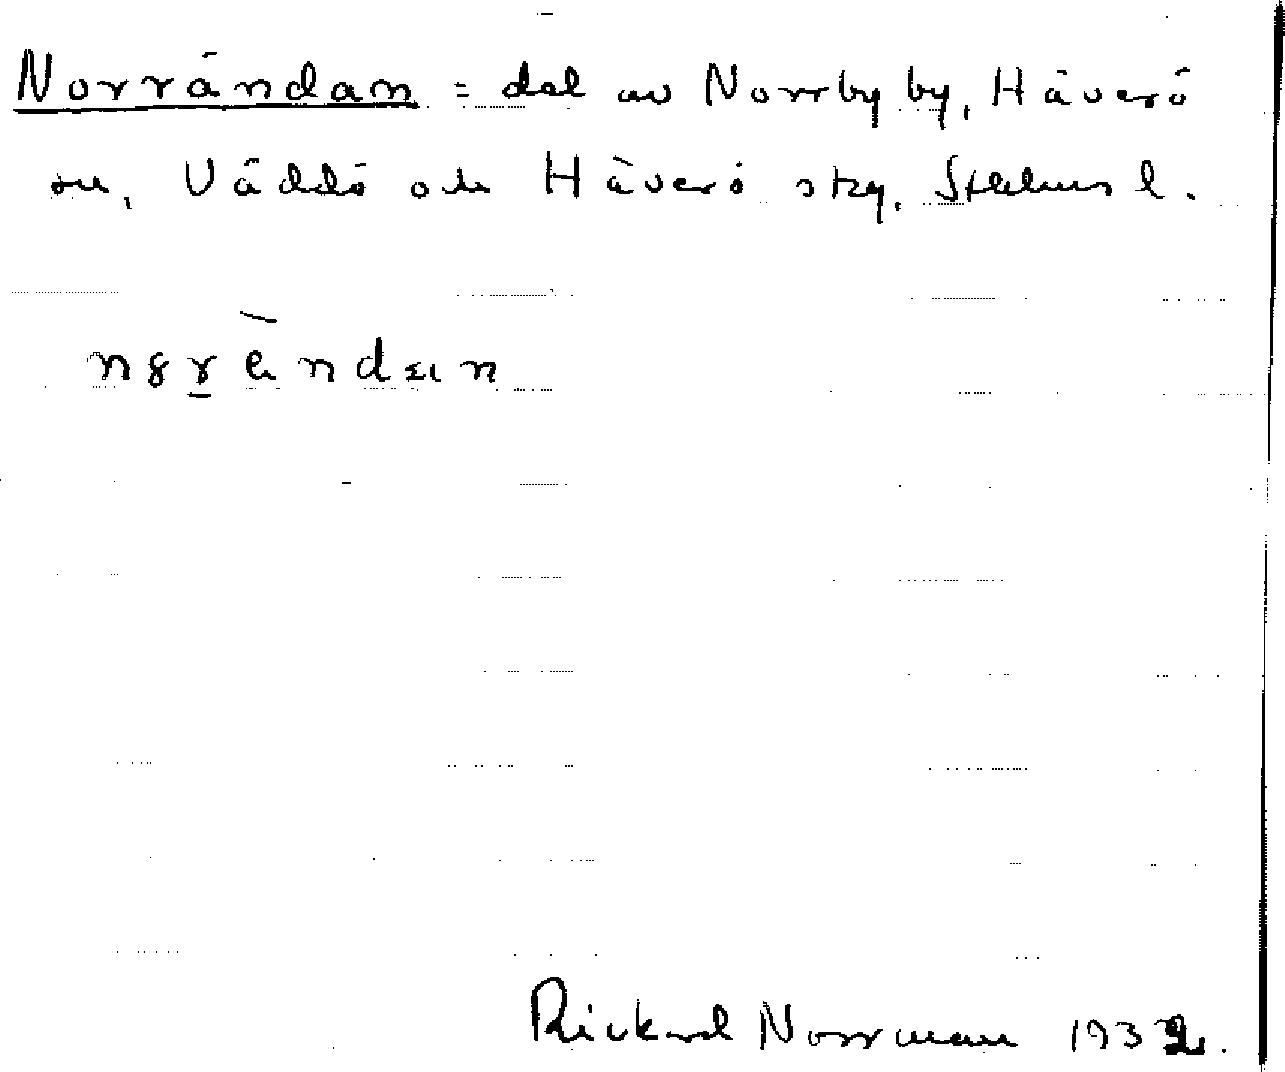 Norrändan = del av Norrby by, Häverö
sn, Väddö och Häverö skg. Sthlms l.
Rickard Norrman 1932.